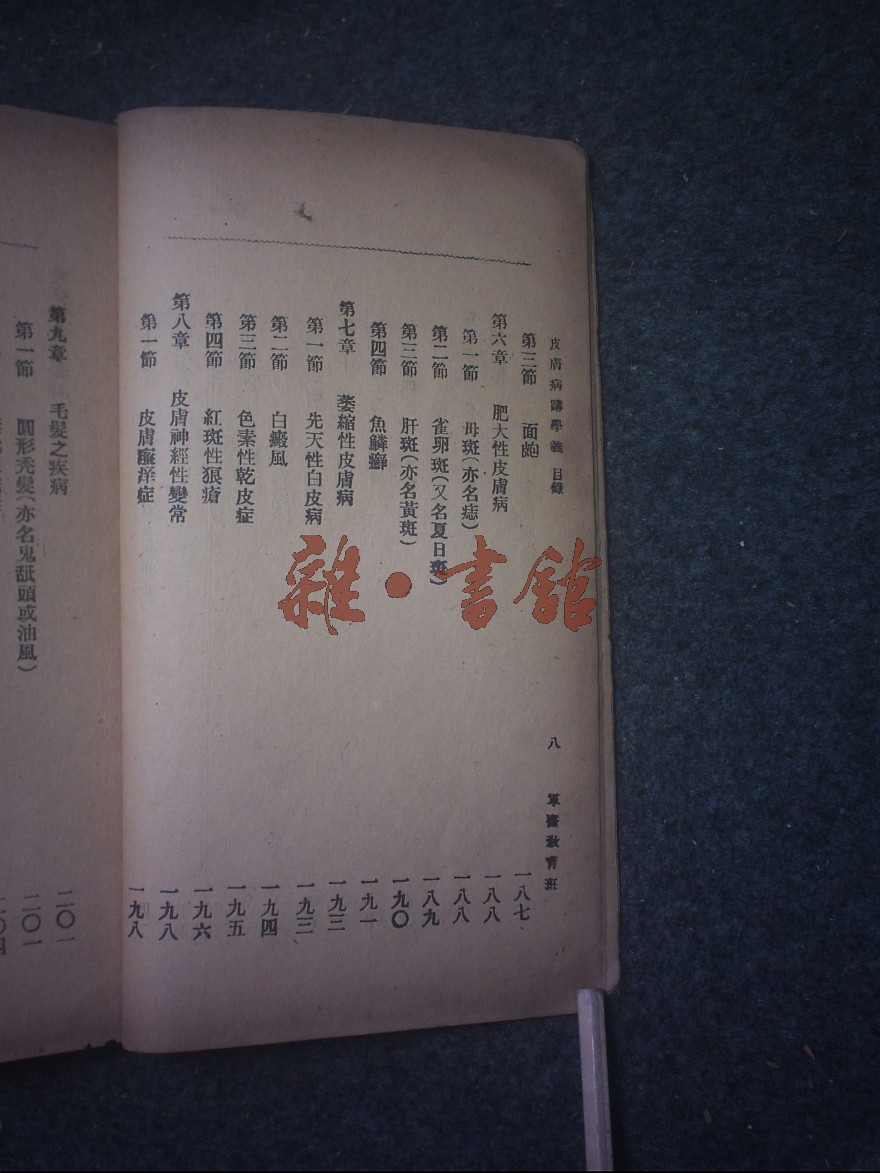 皮膚病講學義 目錄 八 軍醫教育班
第三節 面皰 一八七
第六章 肥大性皮膚病 一八八
第一節 母斑(亦名痣) 一八八
第二節 雀卵斑(又名夏日斑) 一八九
第三節 肝斑(亦名黃斑) 一九〇
第四節 魚鱗癬 一九一
第七章 萎縮性皮膚病 一九三
第一節 先天性白皮病 一九三
第二節 白癜風 一九四
第三節 色素性乾皮症 一九五
第四節 紅斑性狼瘡 一九六
第八章 皮膚神經性變常 一九八
第一節 皮膚瘙痒症 一九八
第九章 毛髮之疾病 二〇一
第一節 圓形禿髮(亦名鬼舐頭或油風) 二〇一
雜·書館